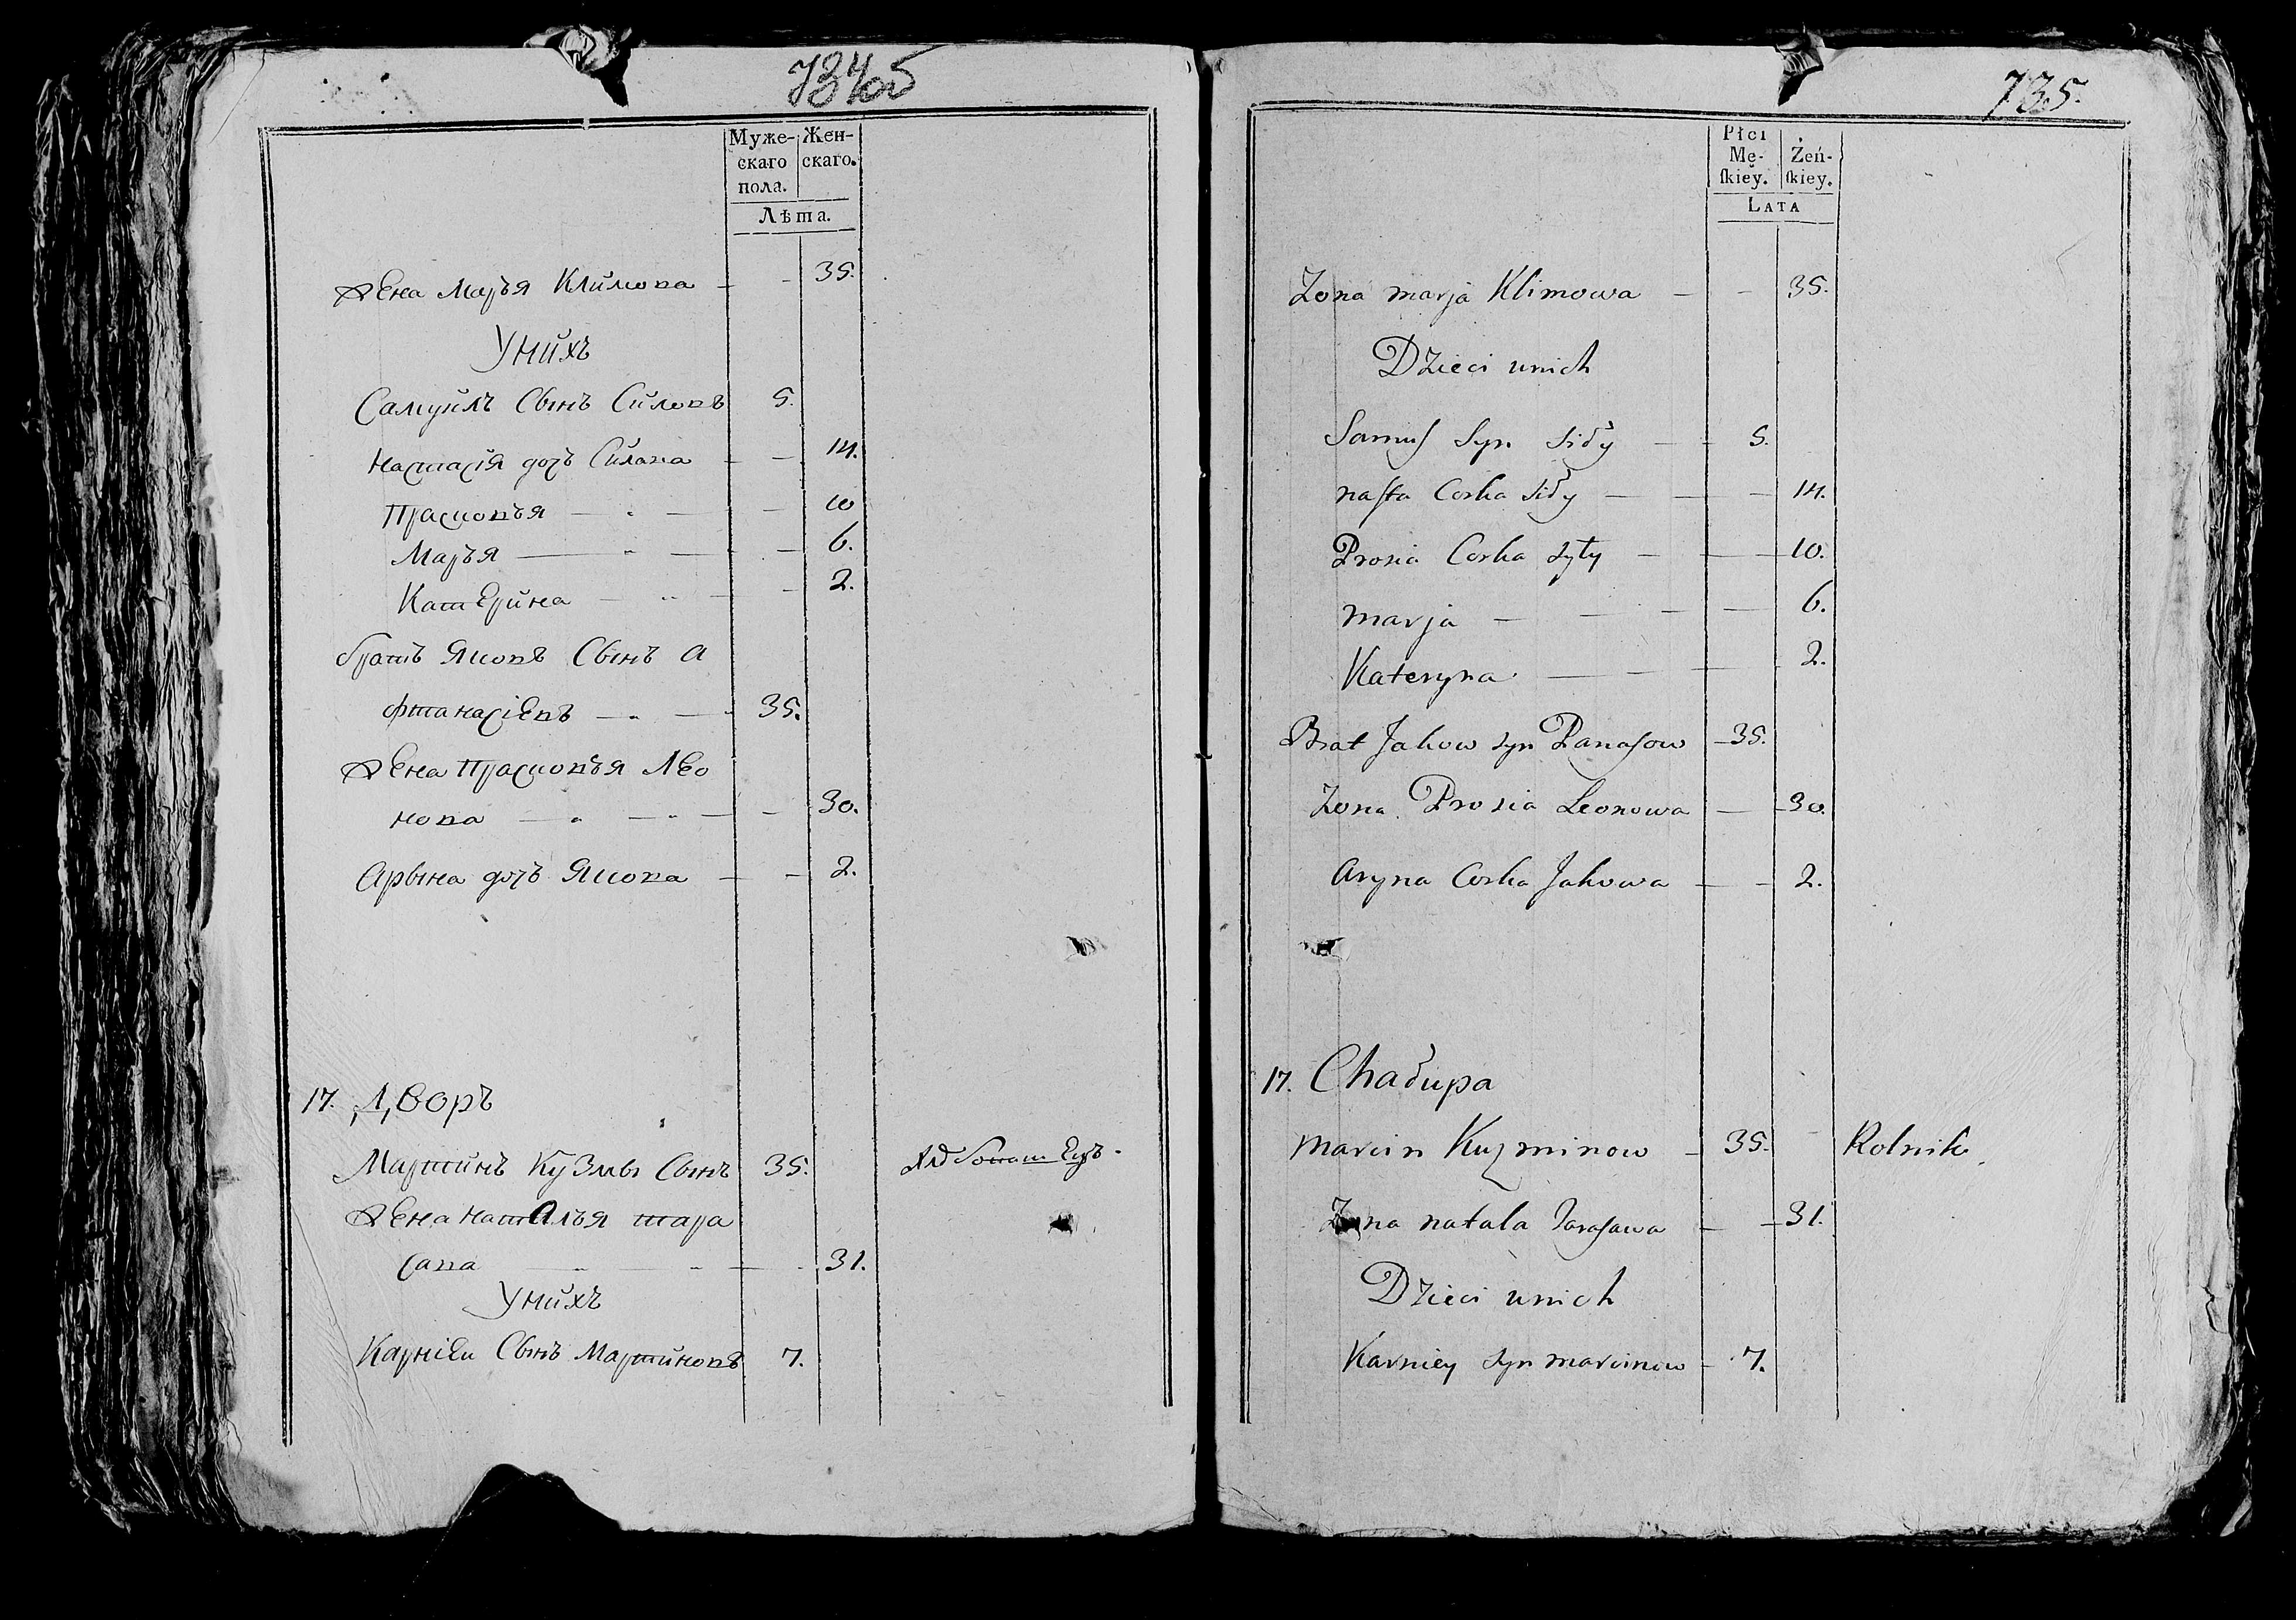 734об
Муже- Жен-
скаго скаго.
пола.
Лѣта.
Жена Марья Климова — - 35.
У нихъ
Самуилъ Сынъ Силовъ 5.
Настасія дочь Силова - — 14.
Прасковья — - — — 10
Марья — - — — 6.
Катерина — - — - 2.
братъ Яковъ Сынъ А
фтанасіевъ — - — 35.
Жена Прасковья Лео
нова — - — - — — 30.
Арына дочь Якова — - 2.
17. Дворъ
Мартинъ Кузмы Сынъ 35. Хлѣбопашецъ.
Жена наталья тара
сава — - — 31.
У нихъ
Карніей Сынъ Мартиновъ 7.
735.
Płci
Mę- Żeń-
ſkiey. ſkiey.
LATA
Zona marja Klimowa — — 35.
Dzieci unich
Samuſ Syn Siły — - 5.
naſta Corka Siły — — — 14.
Prosia Corka Syły — — 10.
marja — — — — 6.
Kateryna — — — 2.
Brat Jakow syn Panaſow — 35.
Zona Prosia Leonowa — 30.
Aryna Corka Jakowa — - 2.
17. Chałupa
marcin Kuzminow — 35. Rolnik.
Zona natala Taraſawa — — 31.
Dzieci unich
Karniey syn marcinow - 7.